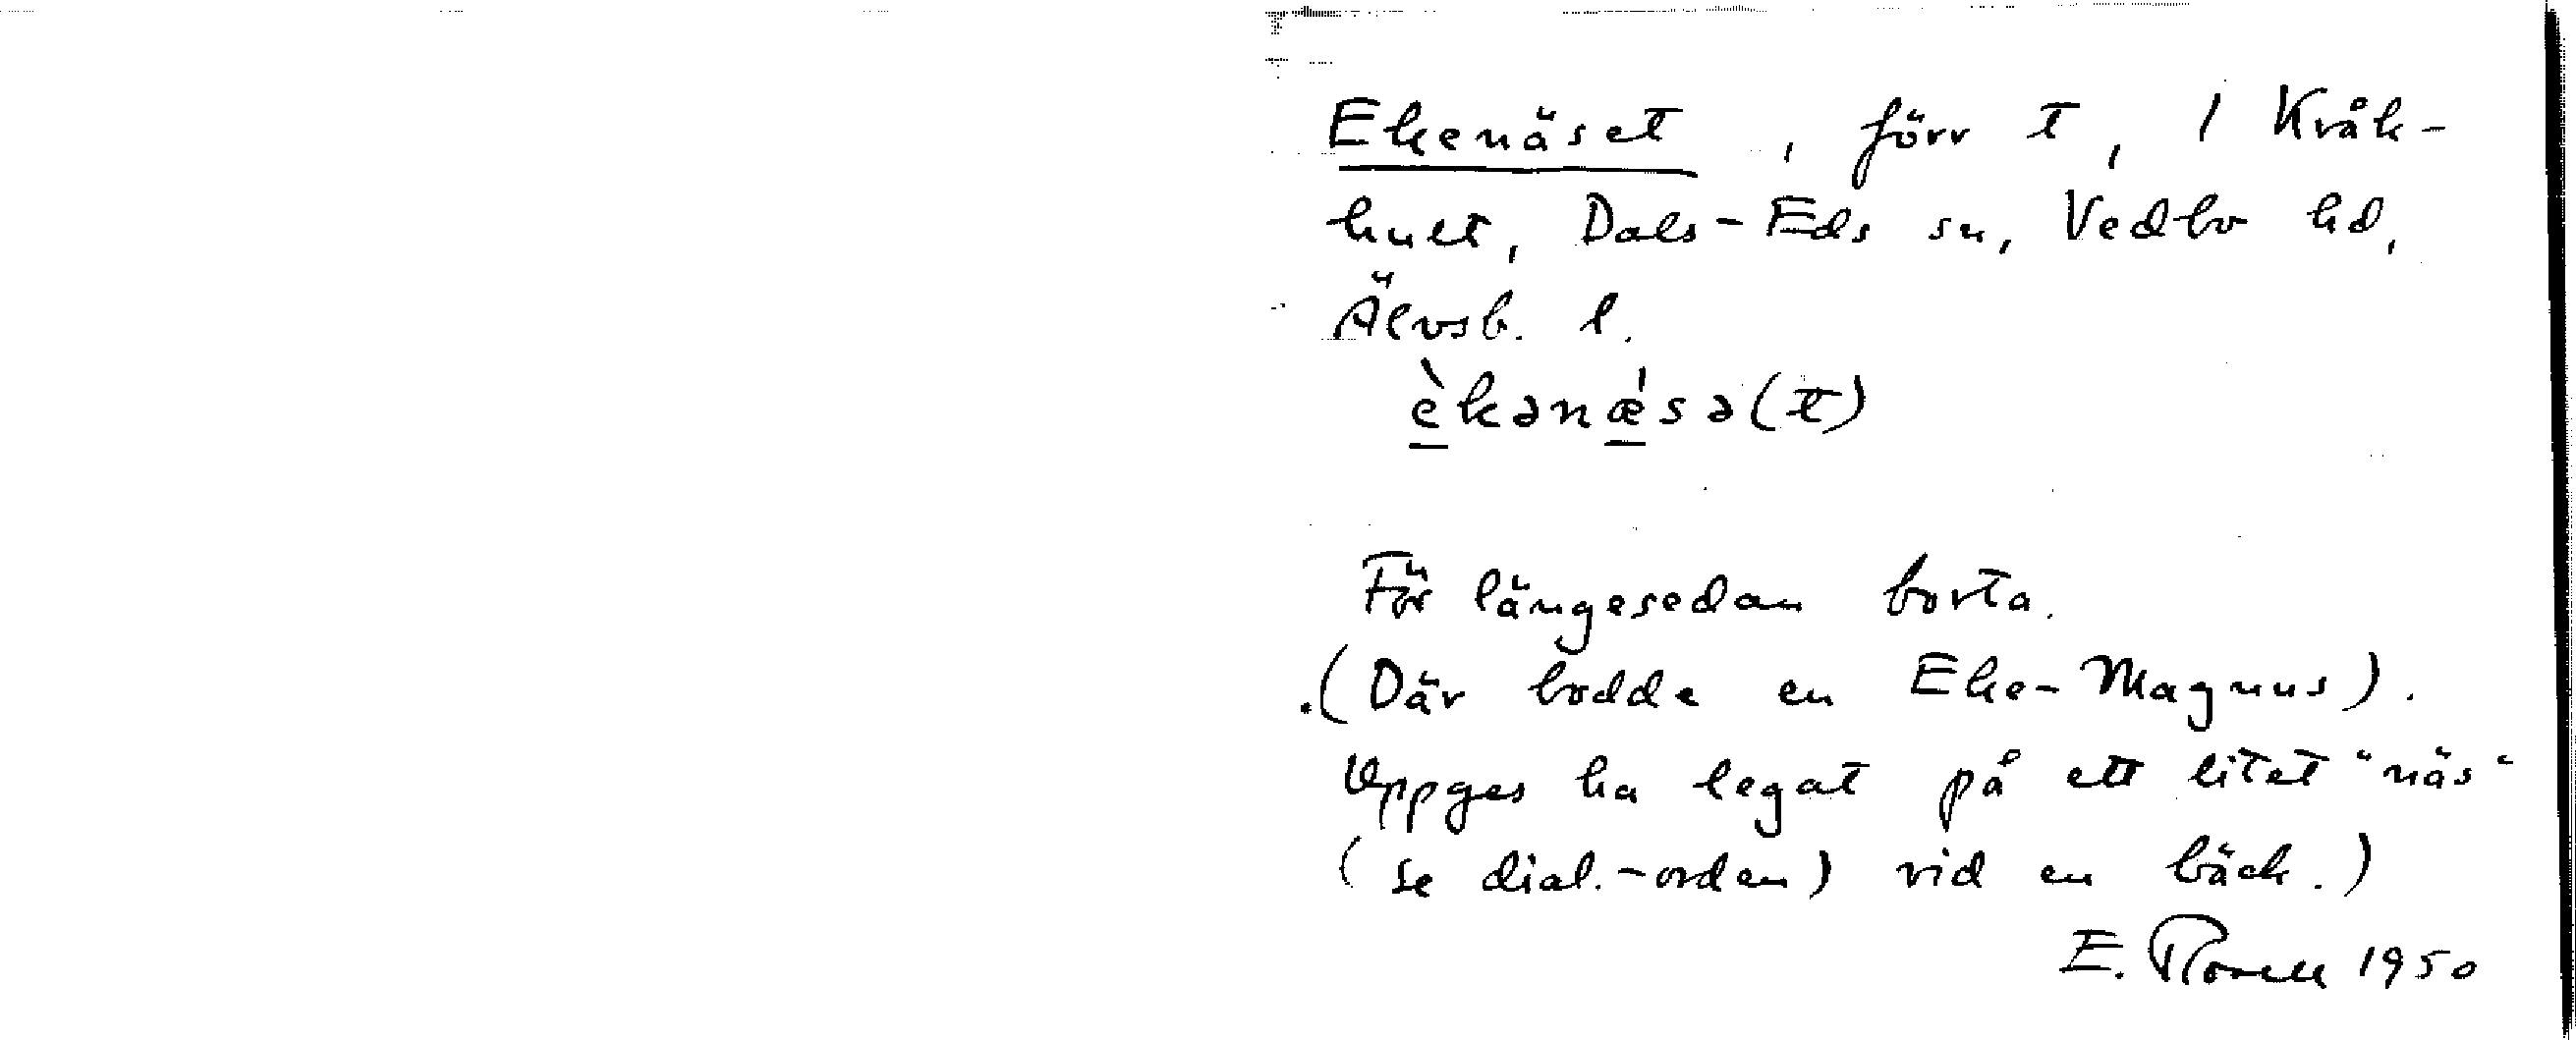 Ekenäset, förr t, 1 Kråk-
hult, Dals-Eds sn, Vedbo hd,
Älvsb. l.
èkənǽsə(t)
För längesedan borta.
(Där bodde en Eke-Magnus).
Uppges ha legat på ett litet "näs"
(se dial.-orden) vid en bäck.)
E. 1950